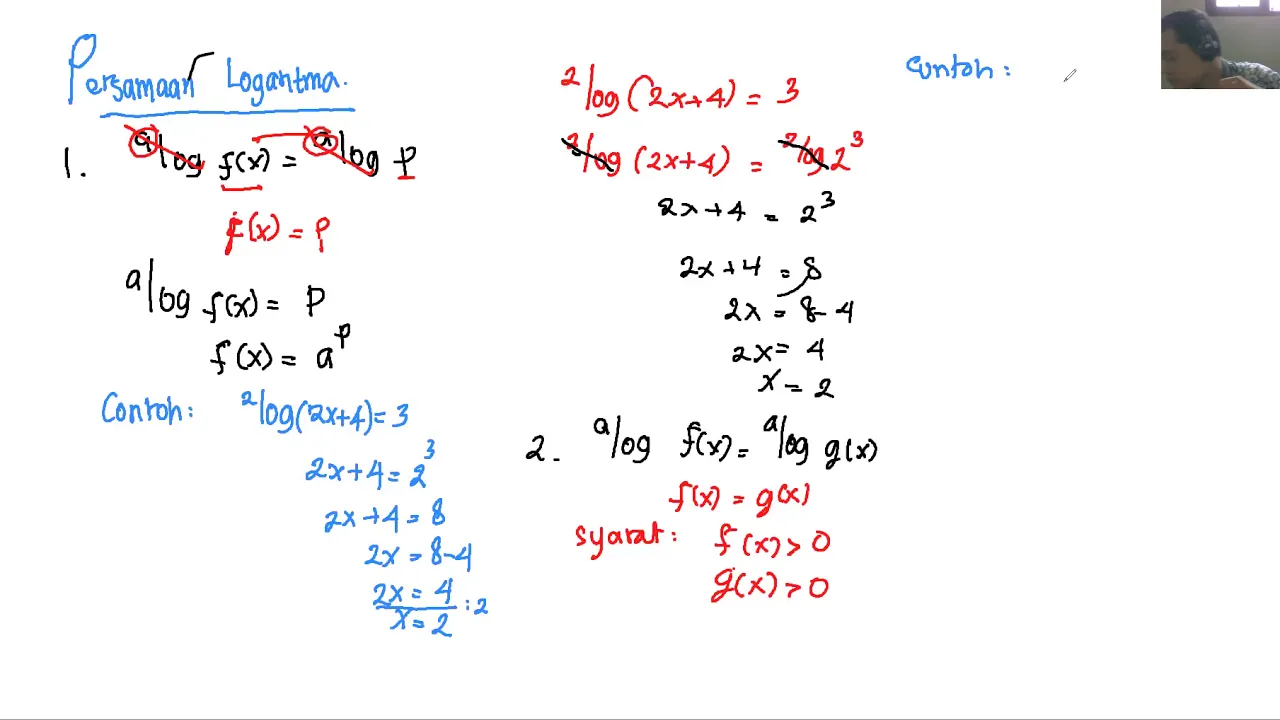 Persamaan Logaritma.
1. ᵃlog f(x) = ᵃlog P
f(x) = P
ᵃlog f(x) = P
f(x) = aᵖ
Contoh: ²log(2x+4) = 3
2x+4 = 2³
2x+4 = 8
2x = 8-4
2x = 4 :2
x = 2
²log(2x+4) = 3
²log(2x+4) = ²log 2³
2x+4 = 2³
2x+4 = 8
2x = 8-4
2x = 4
x = 2
2. ᵃlog f(x) = ᵃlog g(x)
f(x) = g(x)
Syarat: f(x) > 0
g(x) > 0
Contoh: